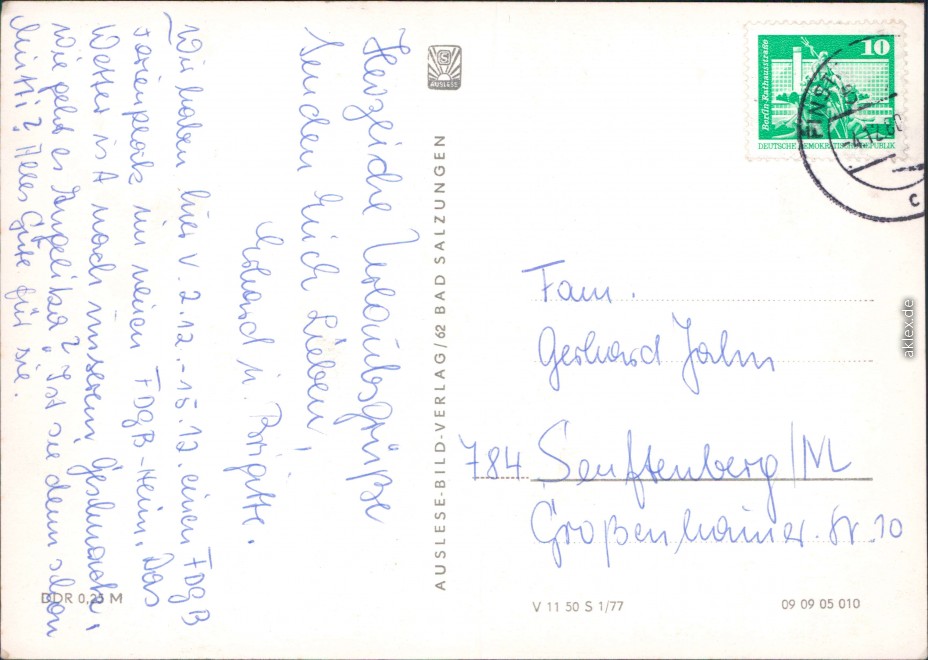 Herzliche Urlaubsgrüße
senden Euch Lieben,
Erhard u. Brigitte.
Wir haben hier v. 2.12.-15.12. einen FDGB
Ferienplatz im neuen FDGB-Heim. Das
Wetter ist nach unserem Geschmack,
Wie geht es Angelika? Ist sie denn schon
Mutti? Alles Gute für sie.
DDR 0,25 M
AUSLESE
AUSLESE-BILD-VERLAG/62 BAD SALZUNGEN
Berlin-Rathausstraße
10
DEUTSCHE DEMOKRATISCHE REPUBLIK
-4.12.80
c
Fam.
Gerhard Jahn
784 Senftenberg/NL
Großenhainer-Str. 10
V 11 50 S 1/77
09 09 05 010
aklex.de